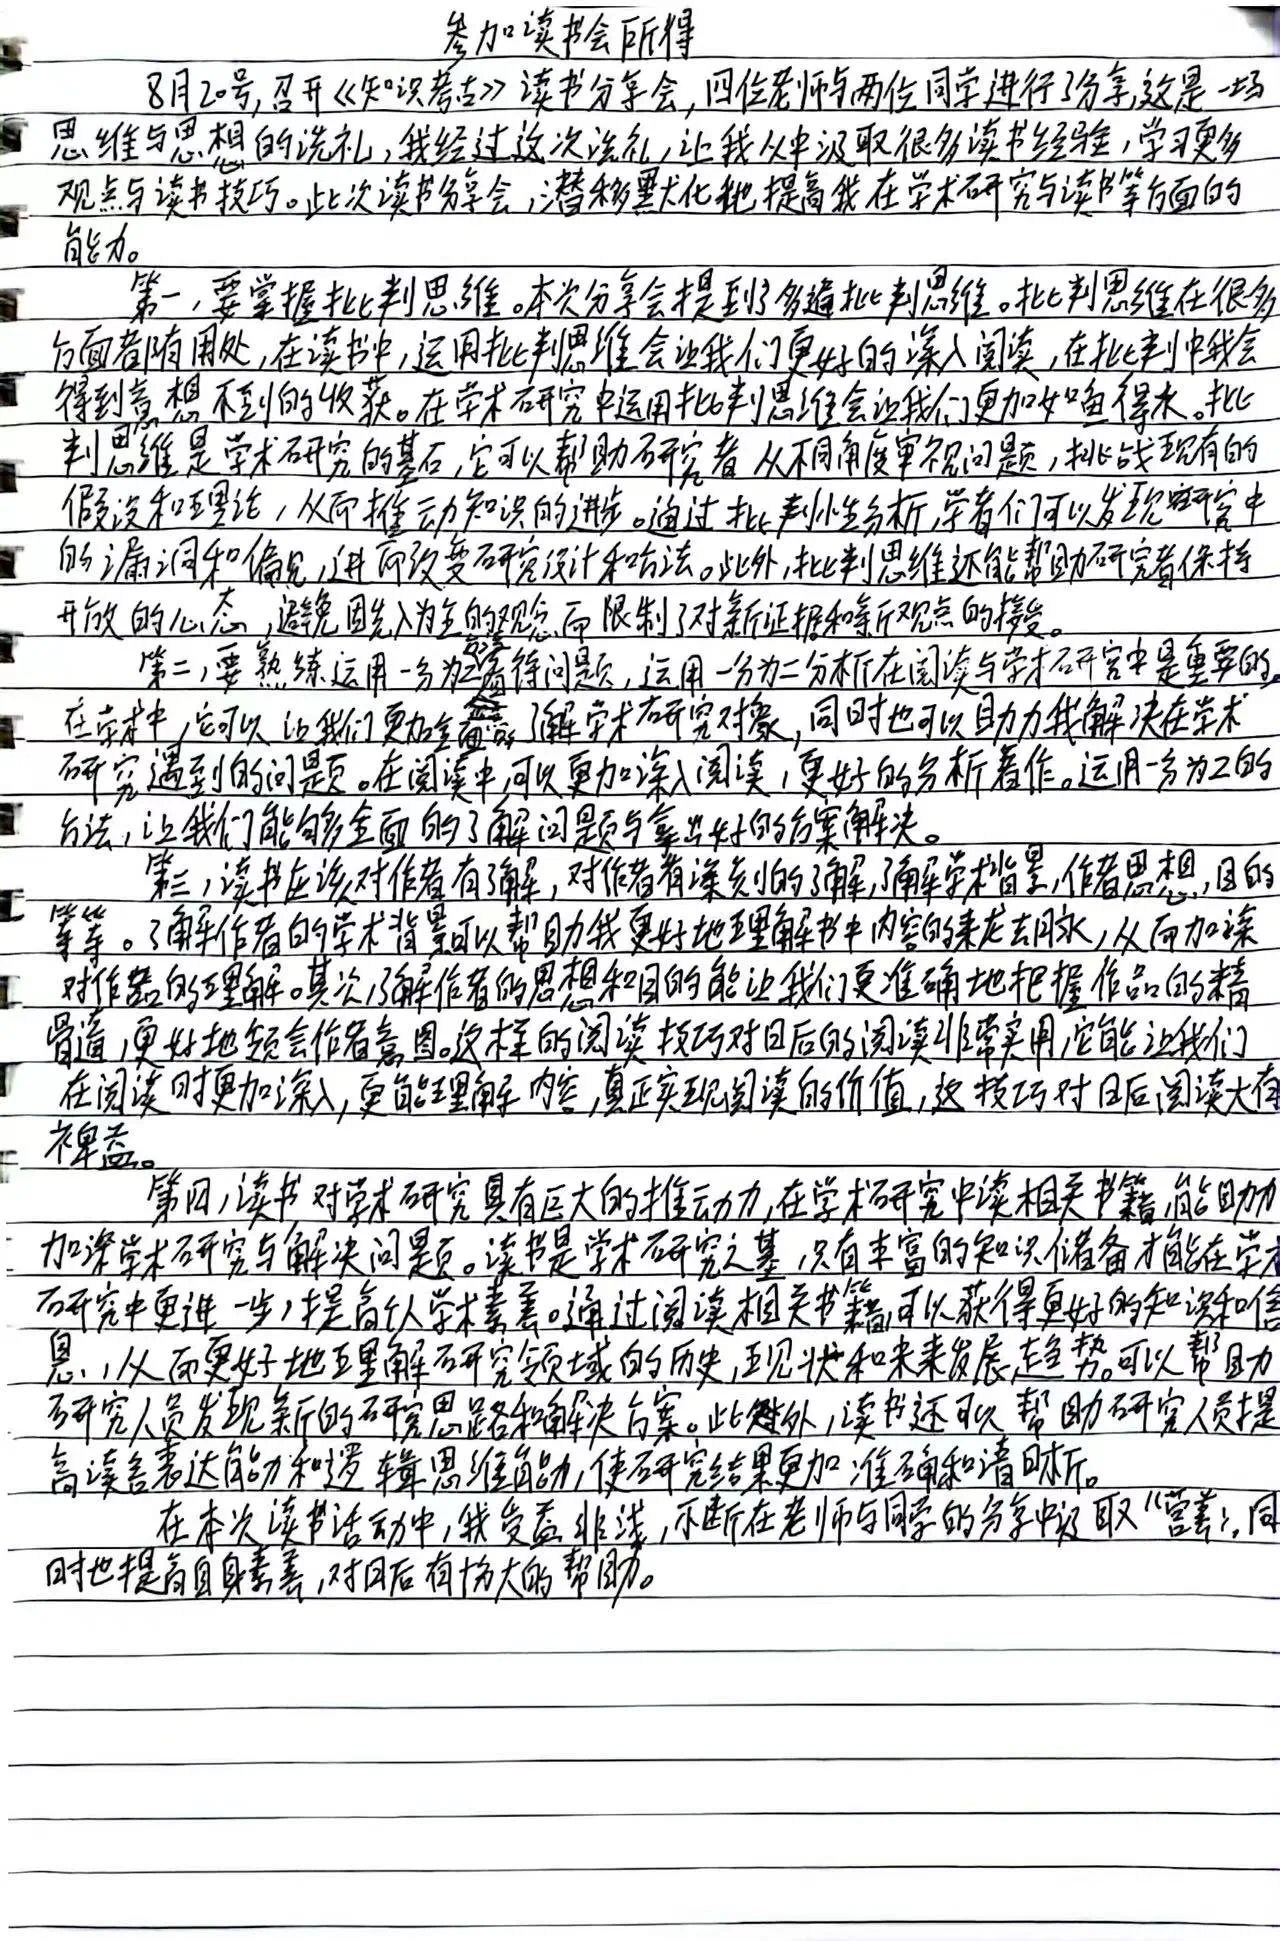 参加读书会所得
8月20号,召开《知识考古》读书分享会,四位老师与两位同学进行了分享,这是一场
思维与思想的洗礼,我经过这次洗礼,让我从中汲取很多读书经验,学习更多
观点与读书技巧。此次读书分享会,潜移默化地提高我在学术研究与读书等方面的
能力。
第一,要掌握批判思维。本次分享会提到了多遍批判思维。批判思维在很多
方面都有用处,在读书中,运用批判思维会让我们更好的深入阅读,在批判中我会
得到意想不到的收获。在学术研究中运用批判思维会让我们更加如鱼得水。批
判思维是学术研究的基石,它可以帮助研究者从不同角度审视问题,挑战现有的
假设和理论,从而推动知识的进步。通过批判性分析,学者们可以发现研究中
的漏洞和偏见,进而改变研究设计和方法。此外,批判思维还能帮助研究者保持
开放的心态,避免因先入为主的观念而限制了对新证据和新观点的接受。
第二,要熟练运用一分为二看待问题,运用一分为二分析在阅读与学术研究中是重要的。
在学术中,它可以让我们更加全面的了解学术研究对象,同时也可以助力我解决在学术
研究遇到的问题。在阅读中,可以更加深入阅读,更好的分析著作。运用一分为二的
方法,让我们能够多全面的了解问题与拿出好的方案解决。
第三,读书应该对作者有了解,对作者有深刻的了解,了解学术背景,作者思想,目的
等等。了解作者的学术背景可以帮助我更好地理解书中内容的来龙去脉,从而加深
对作品的理解。其次,了解作者的思想和目的能让我们更准确地把握作品的精
骨道,更好地领会作者意图。这样的阅读技巧对日后的阅读非常实用,它能让我们
在阅读时更加深入,更能理解内容,真正实现阅读的价值,这技巧对日后阅读大有
裨益。
第四,读书对学术研究具有巨大的推动力,在学术研究中读相关书籍,能助力
加深学术研究与解决问题。读书是学术研究之基,只有丰富的知识储备才能在学术
研究中更进一步,提高个人学术素养。通过阅读相关书籍,可以获得更好的知识和信
息,从而更好地理解研究领域的历史,现状和未来发展趋势。可以帮助
研究人员发现新的研究思路和解决方案。此外,读书还可以帮助研究人员提
高语言表达能力和逻辑思维能力,使研究结果更加准确和清晰。
在本次读书活动中,我受益非浅,不断在老师与同学的分享中汲取“营养”,同
时也提高自身素养,对日后有极大的帮助。